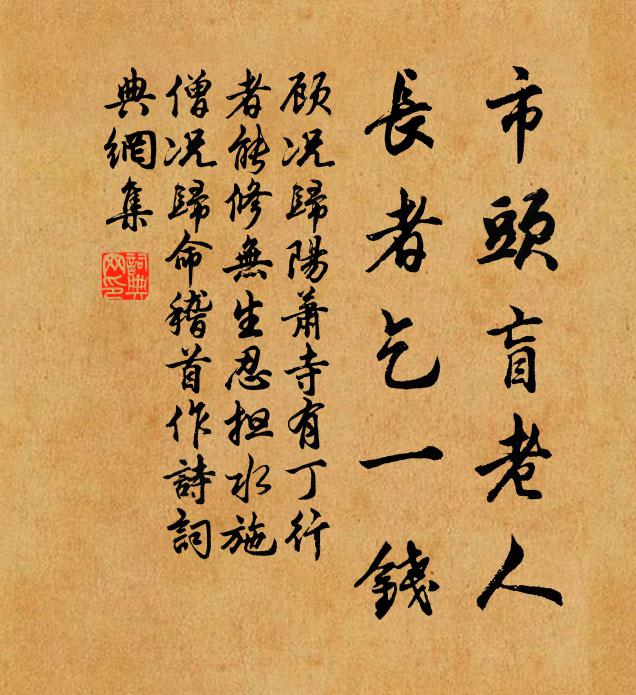 市頭盲老人
長者乞一錢
顧况歸陽蕭寺有丁行
者能修無生忍担水施
僧况歸命稽首作詩詞
典網集
詞典
网印